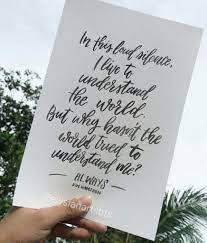 In this loud silence,
I live to
understand
the world.
But why hasn't the
world tried to
understand me?
- ALWAYS -